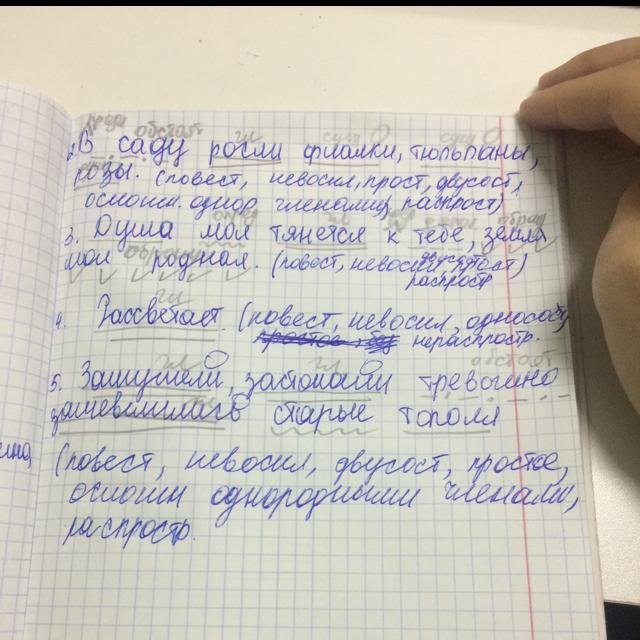 предл обстоят гл сущ О сущ О
2. В саду росли фиалки, тюльпаны,
розы. (повест, невоскл, прост, двусост,
осложн. однор членами, распрост)
3. Душа моя тянется к тебе, земля
моя родная. (повест, невоскл, двусост, прост)
распростр
гл
4. Рассветает. (повест, невоскл, односост,
нераспростр.
гл гл обстоят
5. Зашумели, застонали тревожно
зашевелились старые тополя
(повест, невоскл, двусост, простое,
осложн однородными членами,
распростр.